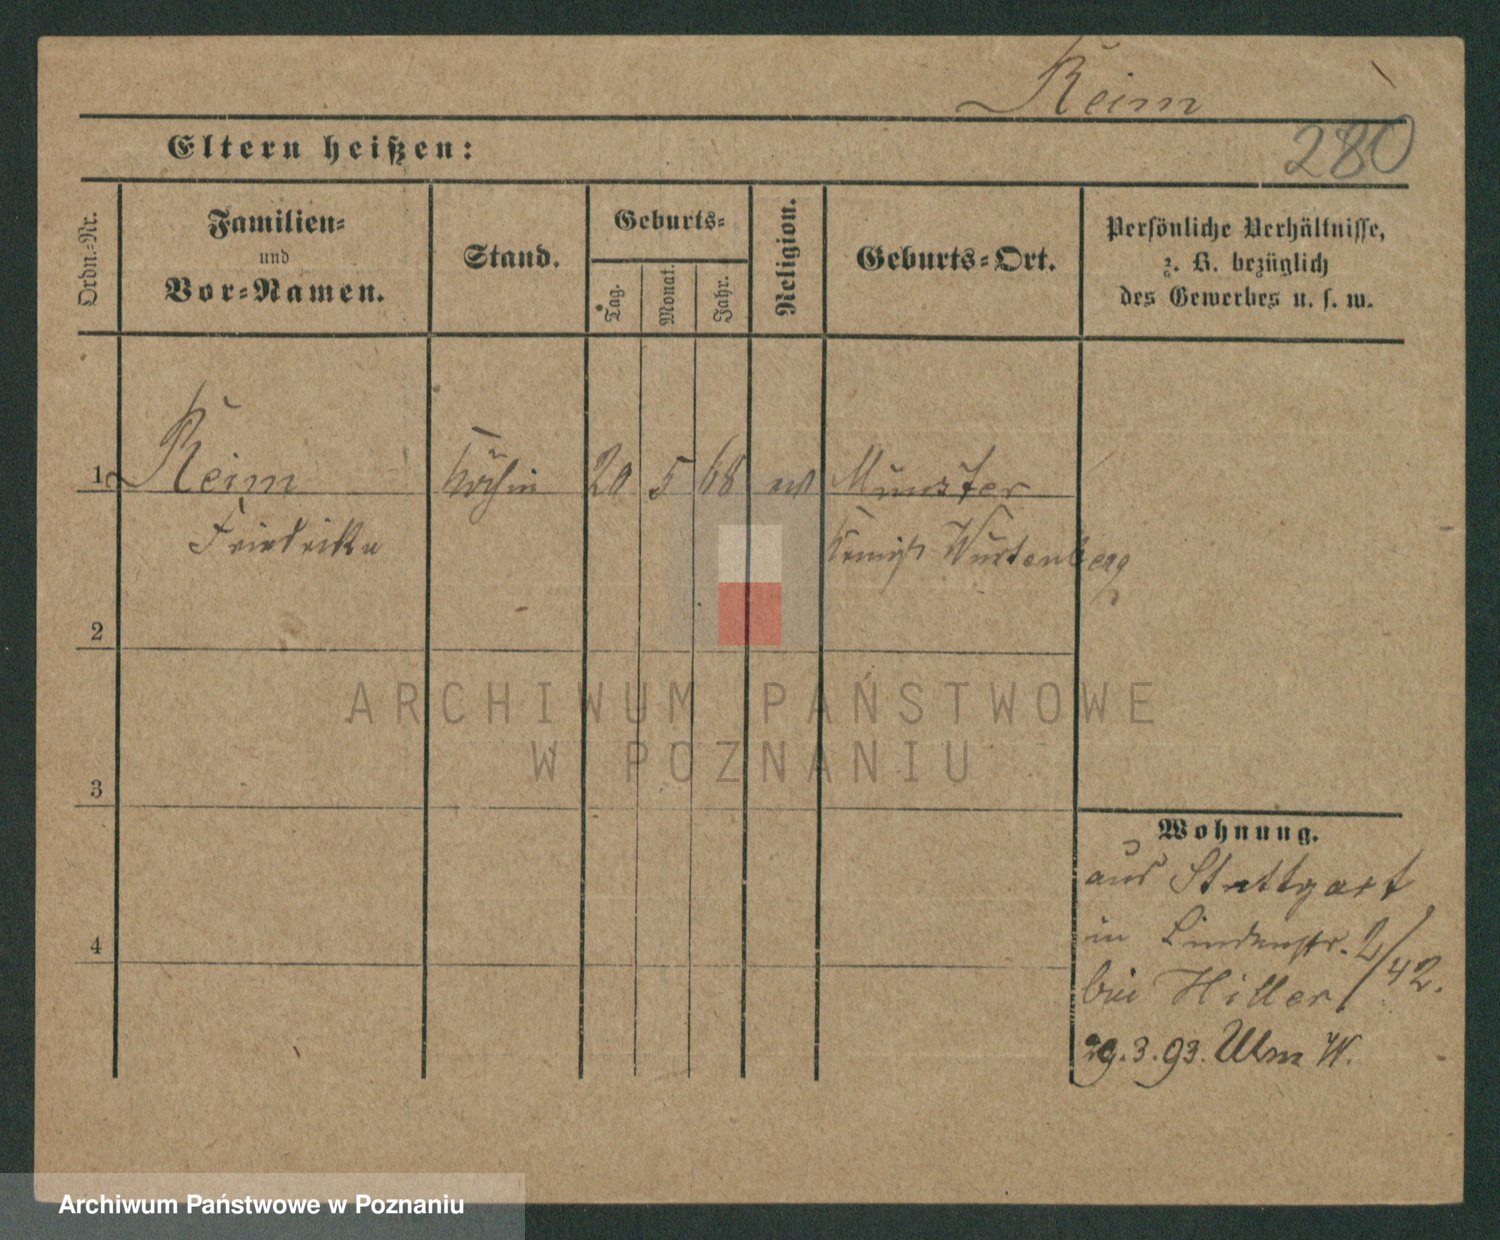 Keim
280
Eltern heißen:
Ordn.-Nr.
Familien-
und
Vor-Namen.
Stand.
Geburts-
Tag.
Monat.
Jahr.
Religion.
Geburts-Ort.
Persönliche Verhältnisse,
z. B. bezüglich
des Gewerbes u. s. w.
1 Keim Köchin 20 5 68 Münster
Friedrike Würtenberg
2
3
4
Wohnung.
aus Stuttgart
in Lindenstr. 2/42.
bei Hiller
29.3.93. Ulm W.
ARCHIWUM PAŃSTWOWE
W POZNANIU
Archiwum Państwowe w Poznaniu